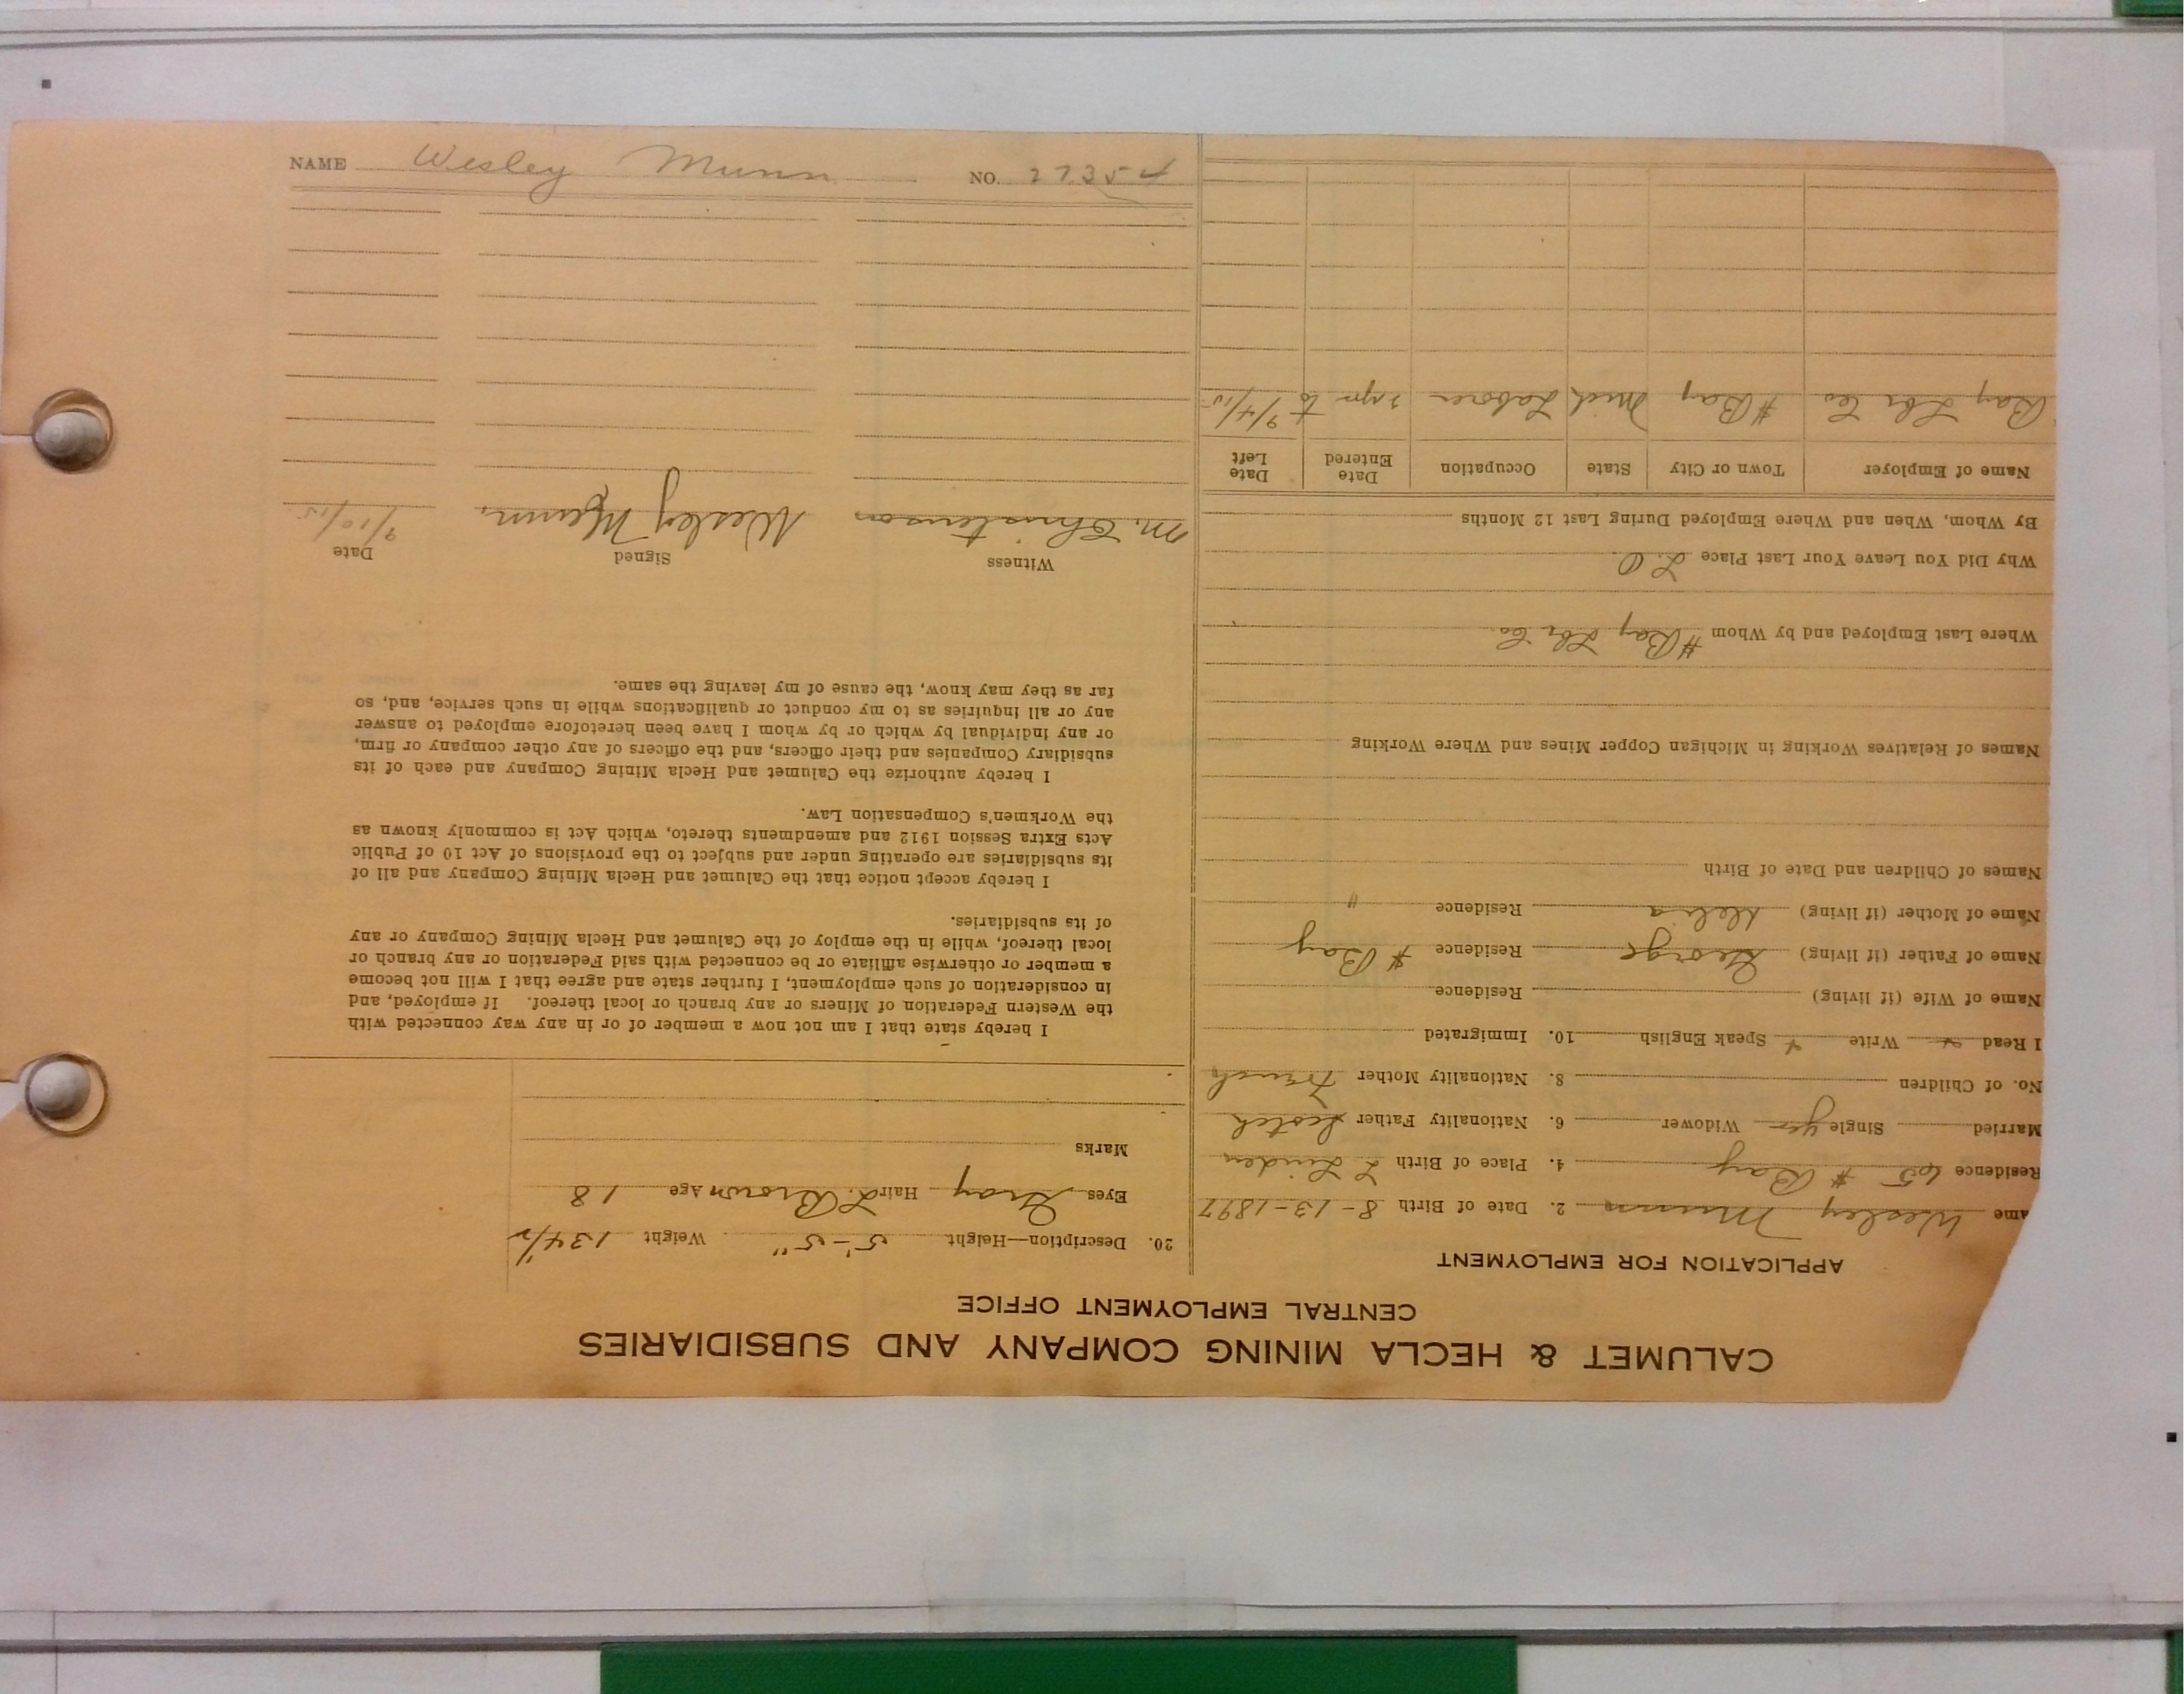 CALUMET & HECLA MINING COMPANY AND SUBSIDIARIES
CENTRAL EMPLOYMENT OFFICE
APPLICATION FOR EMPLOYMENT
ame Wesley Munn 2. Date of Birth 8-13-1897
Residence 65 # Bay 4. Place of Birth L Linden
Married Single yes Widower 6. Nationality Father Scotch
No. of Children 8. Nationality Mother French
I Read Write Speak English 10. Immigrated
Name of Wife (if living) Residence
Name of Father (if living) George Residence # Bay
Name of Mother (if living) Residence "
Names of Children and Date of Birth
Names of Relatives Working in Michigan Copper Mines and Where Working
Where Last Employed and by Whom # Bay Lbr Co.
Why Did You Leave Your Last Place L.O.
By Whom, When and Where Employed During Last 12 Months
Name of Employer Town or City State Occupation Date Entered Date Left
Bay Lbr Co # Bay Mich Laborer 2 yrs to 9/4/15
20. Description—Height 5'-5" Weight 134½
Eyes Gray Hair L. Brown Age 18
Marks
I hereby state that I am not now a member of or in any way connected with
the Western Federation of Miners or any branch or local thereof. If employed, and
in consideration of such employment, I further state and agree that I will not become
a member or otherwise affiliate or be connected with said Federation or any branch or
local thereof, while in the employ of the Calumet and Hecla Mining Company or any
of its subsidiaries.
I hereby accept notice that the Calumet and Hecla Mining Company and all of
its subsidiaries are operating under and subject to the provisions of Act 10 of Public
Acts Extra Session 1912 and amendments thereto, which Act is commonly known as
the Workmen's Compensation Law.
I hereby authorize the Calumet and Hecla Mining Company and each of its
subsidiary Companies and their officers, and the officers of any other company or firm,
or any individual by which or by whom I have been heretofore employed to answer
any or all inquiries as to my conduct or qualifications while in such service, and, so
far as they may know, the cause of my leaving the same.
Witness Signed Date
M. Christenson Wesley Munn. 9/10/15
NAME Wesley Munn NO. 27354